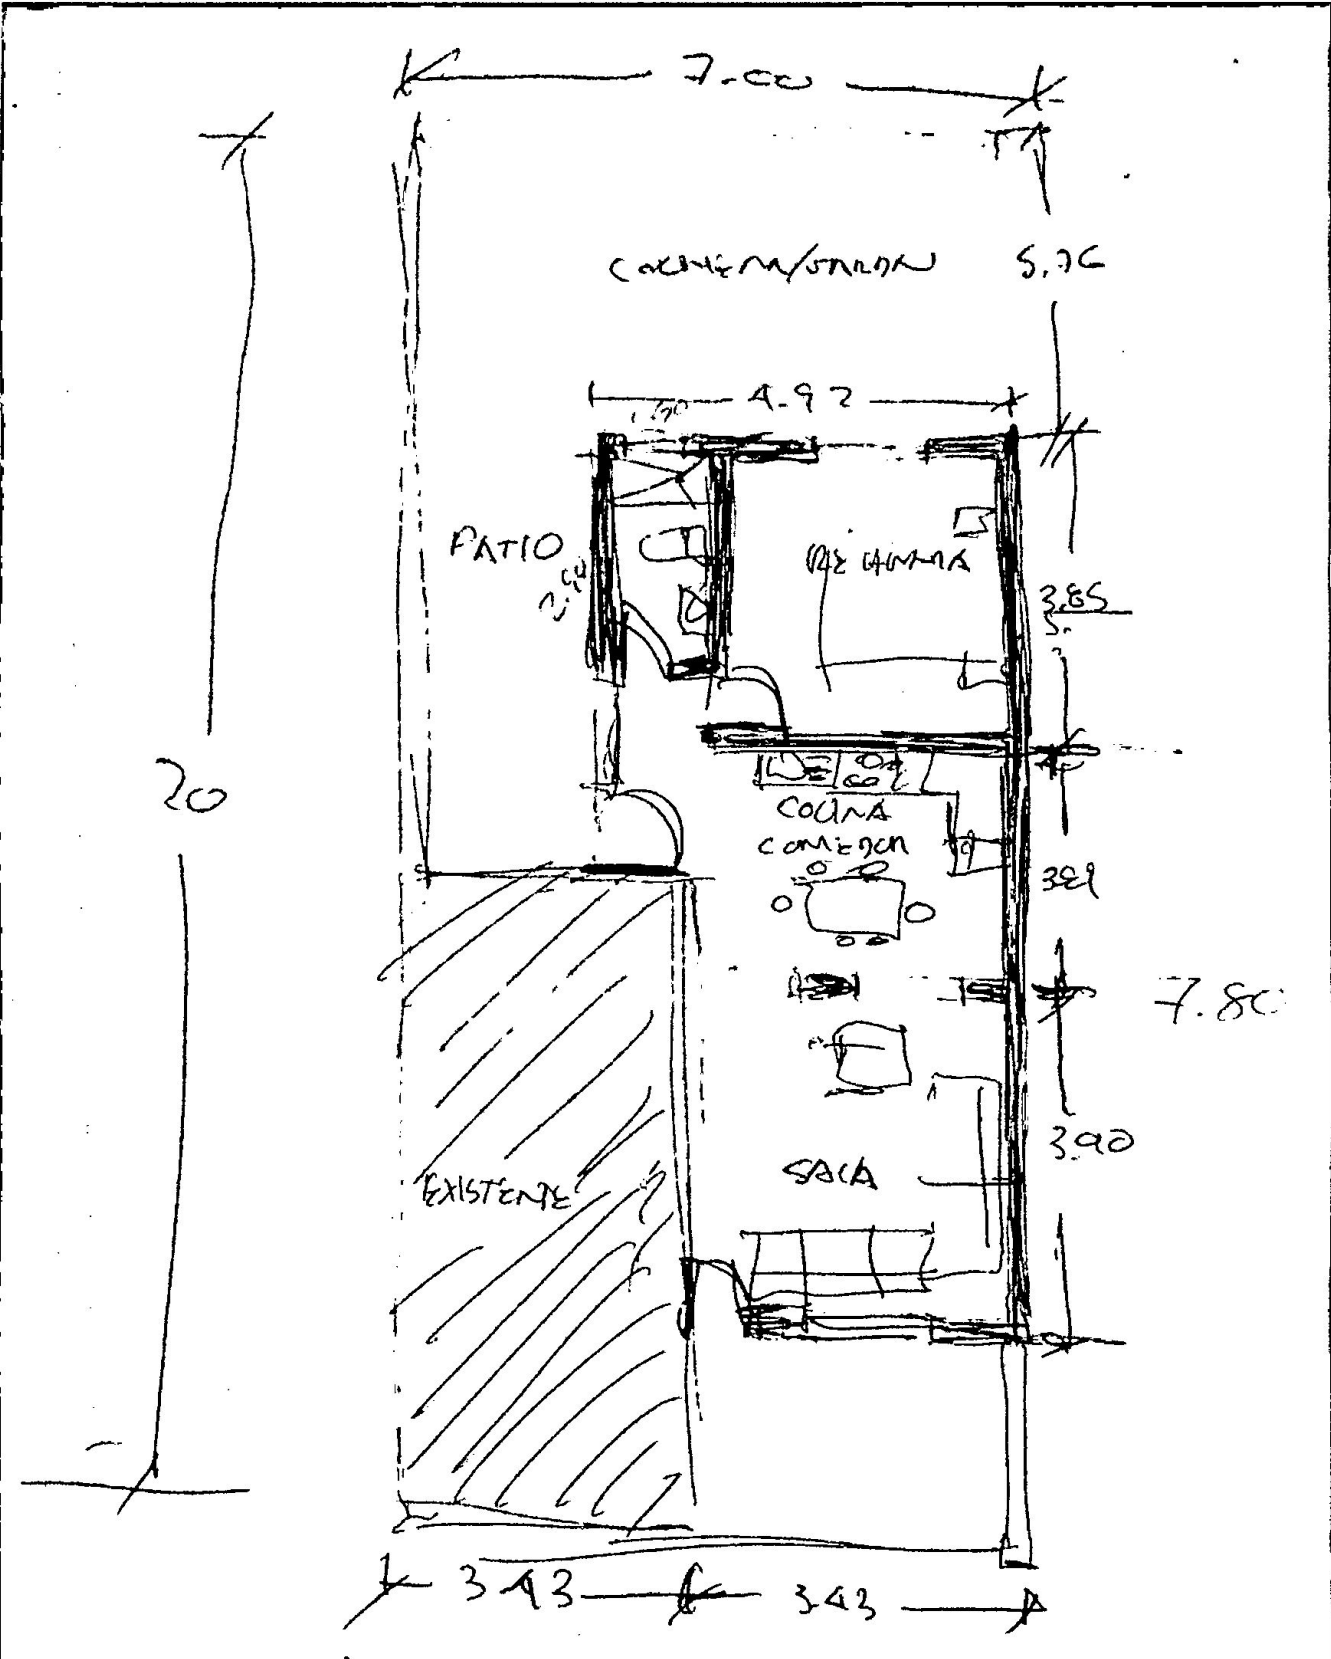 7.00
COCHERA/JARDIN 5.76
4.92
PATIO
RECAMARA
3.85
20
COCINA
COMEDOR
3.89
7.80
3.90
SALA
EXISTENTE
3.43 3.43